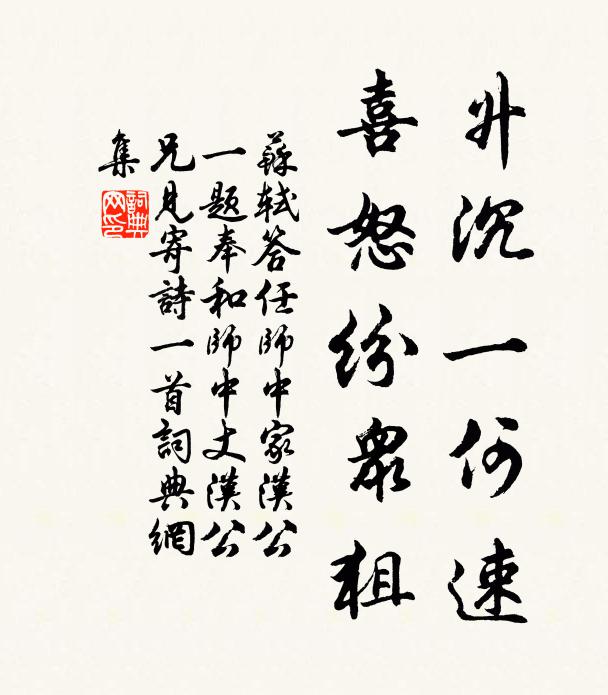 升沉一何速
喜怒紛衆狙
蘇軾答任師中家漢公
一題奉和師中丈漢公
兄見寄詩一首詞典網
集
詞典網印